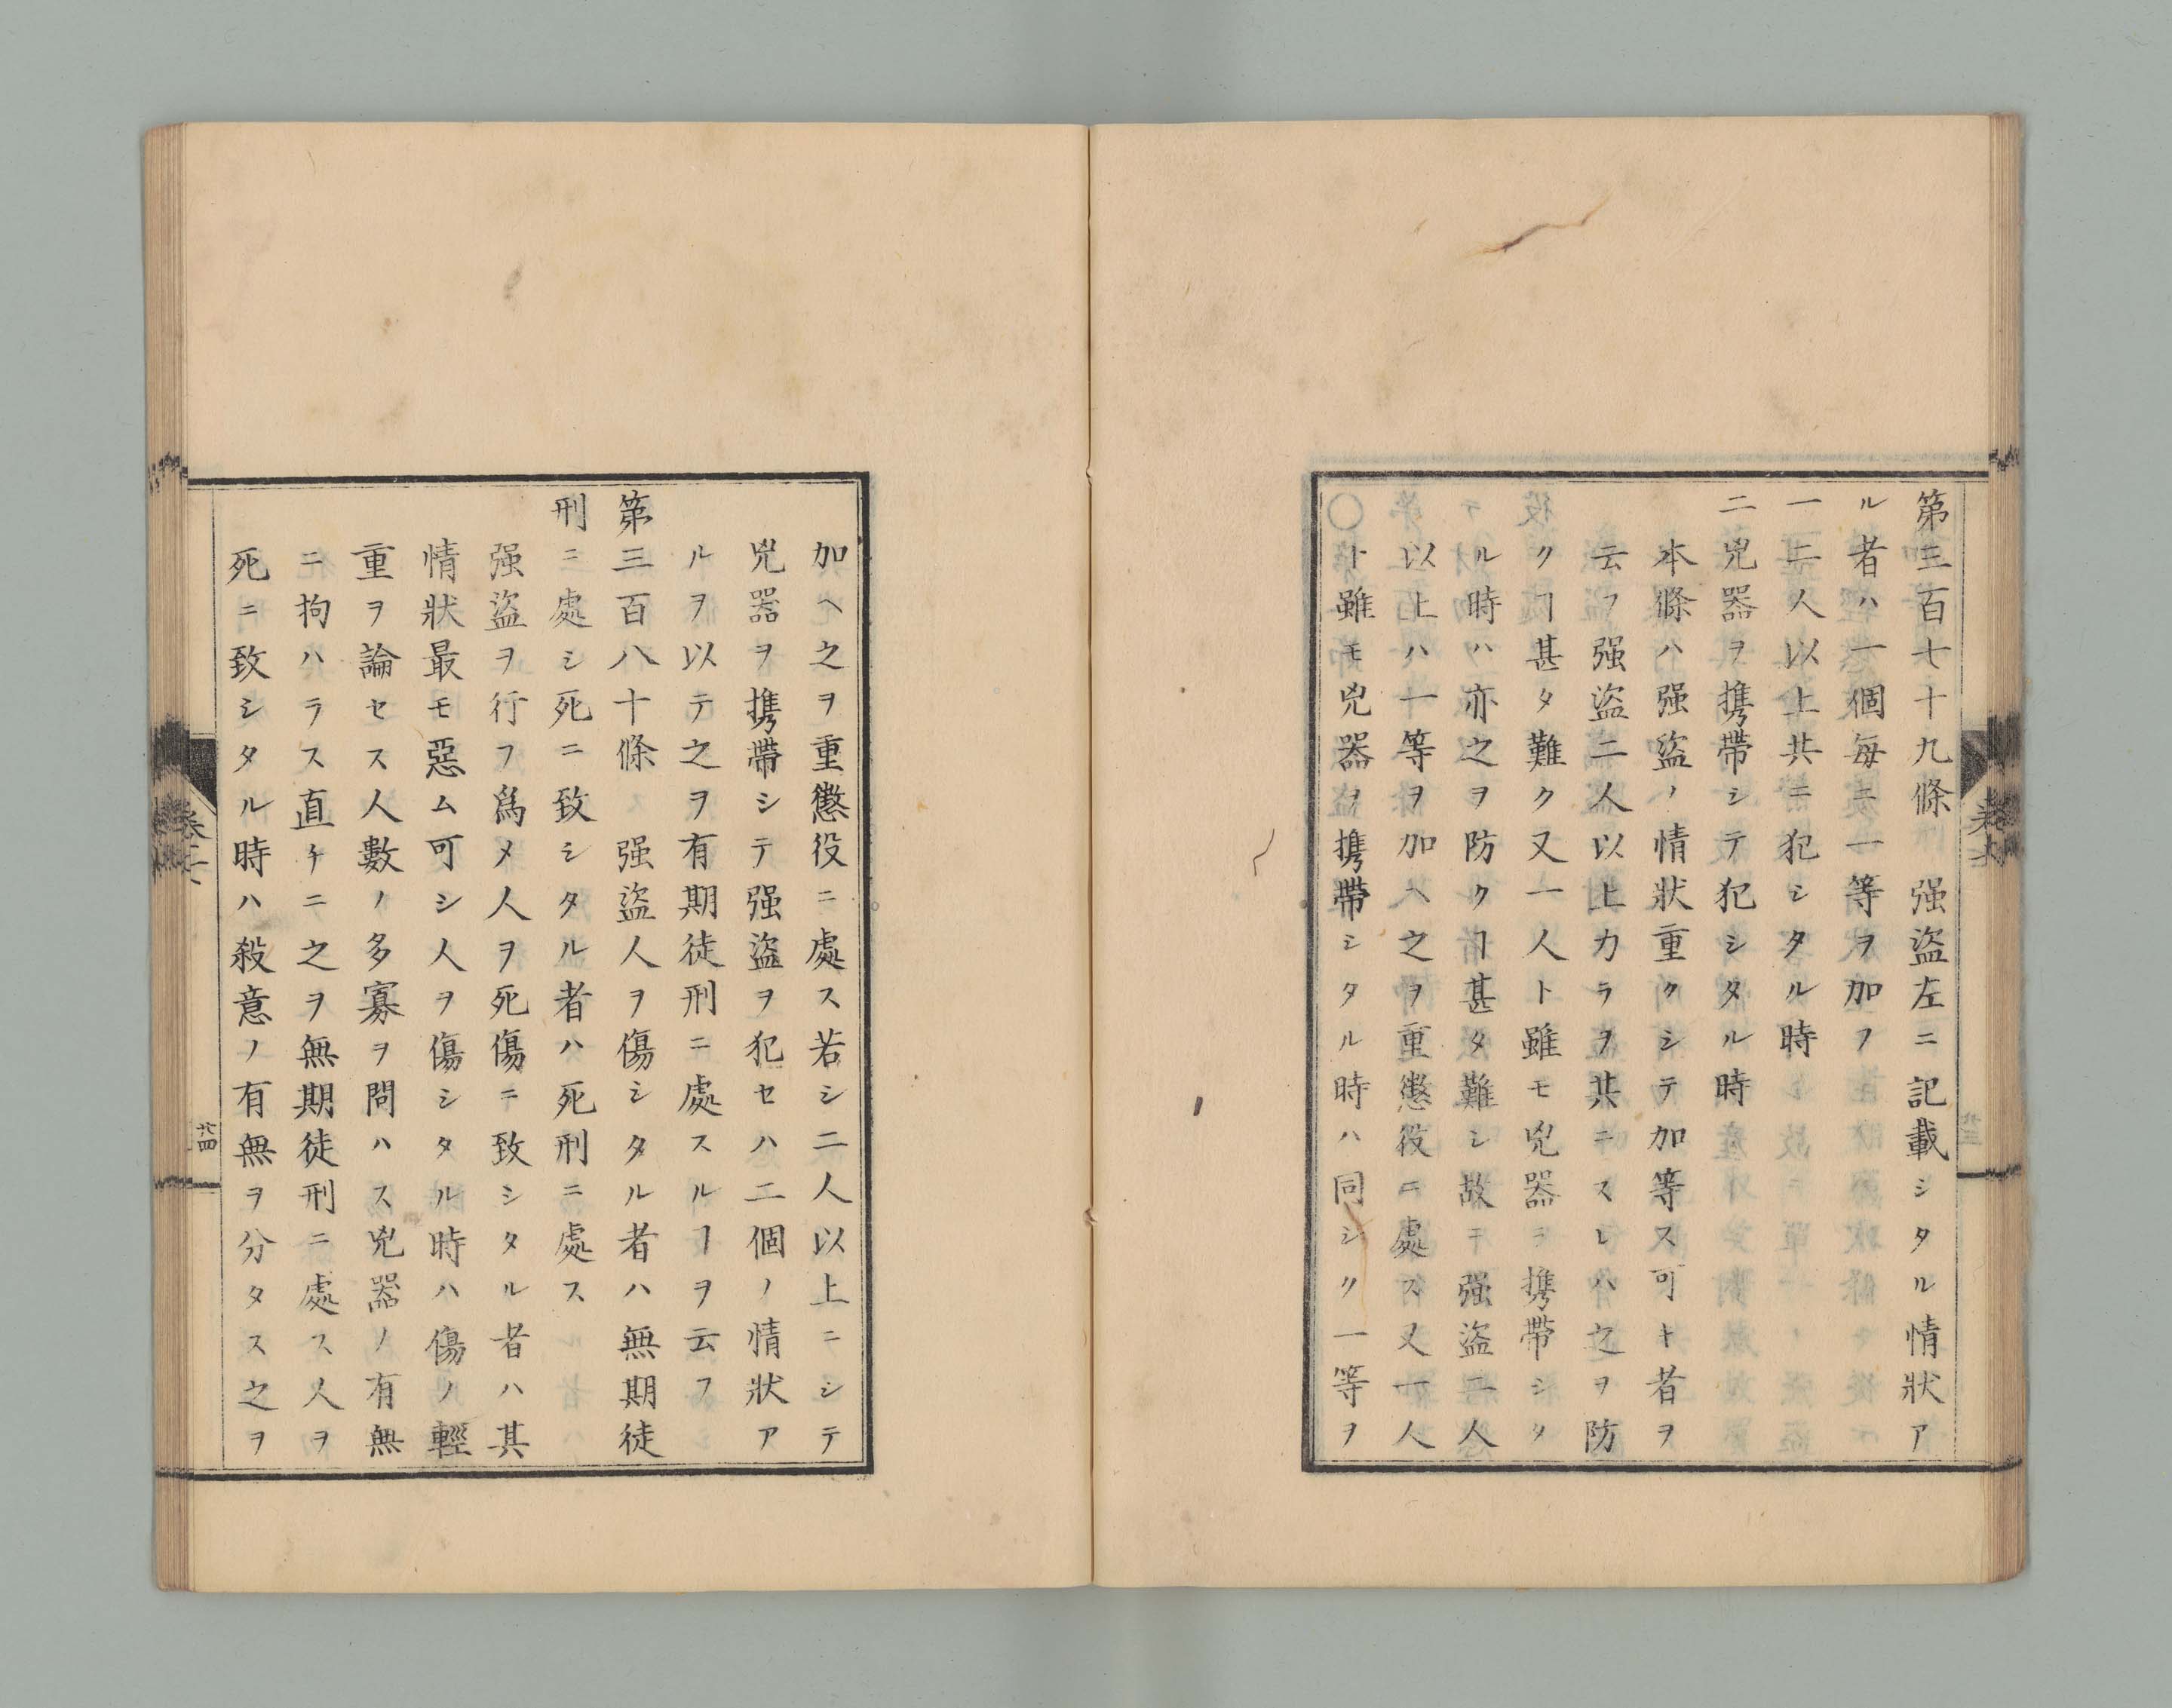 第三百七十九條　强盜左ニ記載シタル情狀ア
ル者ハ一個每ニ一等ヲ加フ
一二人以上共ニ犯シタル時
二兇器ヲ携帶シテ犯シタル時
本條ハ强盜ノ情狀重クシテ加等ス可キ者ヲ
云フ强盜二人以上力ラヲ共ニスレハ之ヲ防
クヿ甚タ難ク又一人ト雖モ兇器ヲ携帶シタ
ル時ハ亦之ヲ防クヿ甚タ難シ故ニ强盜二人
以上ハ一等ヲ加ヘ之ヲ重懲役ニ處ス又一人
ト雖モ兇器ヲ携帶シタル時ハ同シク一等ヲ
加ヘ之ヲ重懲役ニ處ス若シ二人以上ニシテ
兇器ヲ携帶シテ强盜ヲ犯セハ二個ノ情狀ア
ルヲ以テ之ヲ有期徒刑ニ處スルヿヲ云フ
第三百八十條　强盜人ヲ傷シタル者ハ無期徒
刑ニ處シ死ニ致シタル者ハ死刑ニ處ス
强盜ヲ行フ爲メ人ヲ死傷ニ致シタル者ハ其
情狀最モ惡ム可シ人ヲ傷シタル時ハ傷ノ輕
重ヲ論セス人數ノ多寡ヲ問ハス兇器ノ有無
ニ拘ハラス直チニ之ヲ無期徒刑ニ處ス人ヲ
死ニ致シタル時ハ殺意ノ有無ヲ分タス之ヲ
廿四